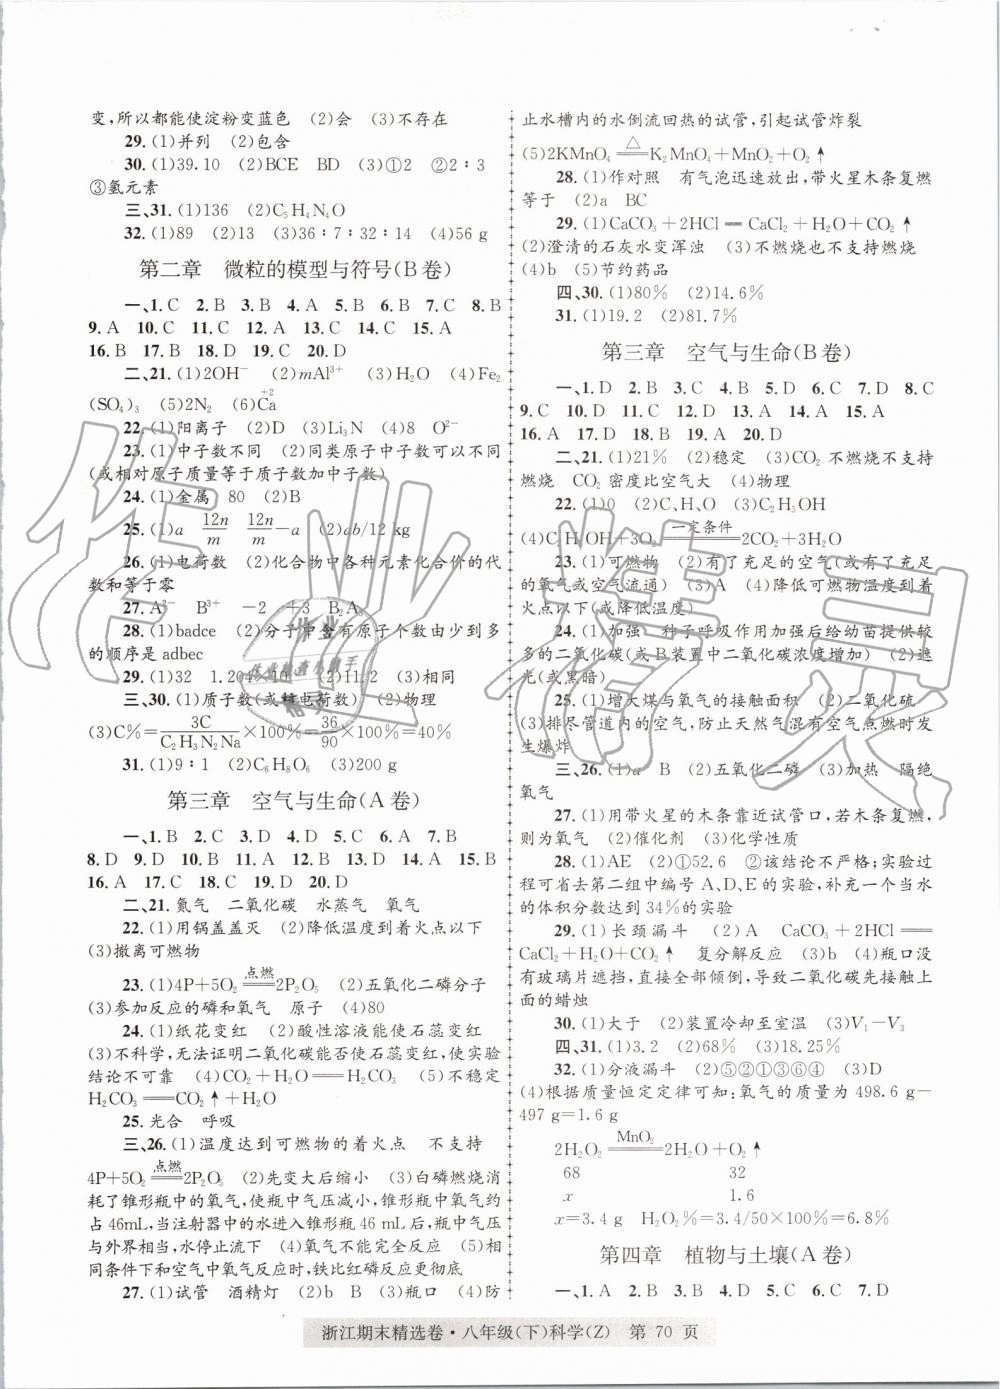 变,所以都能使淀粉变蓝色 (2)会 (3)不存在
29. (1)并列 (2)包含
30. (1)39.10 (2)BCE BD (3)①2 ②2∶3
③氢元素
三、31. (1)136 (2)C₅H₄N₄O
32. (1)89 (2)13 (3)36∶7∶32∶14 (4)56 g
第二章 微粒的模型与符号(B卷)
一、1. C 2. B 3. B 4. A 5. B 6. B 7. C 8. B
9. A 10. C 11. C 12. A 13. C 14. C 15. A
16. B 17. B 18. D 19. C 20. D
二、21. (1)2OH⁻ (2)mAl³⁺ (3)H₂O (4)Fe₂
(SO₄)₃ (5)2N₂ (6)Ca +2
22. (1)阳离子 (2)D (3)Li₃N (4)8 O²⁻
23. (1)中子数不同 (2)同类原子中中子数可以不同
(或相对原子质量等于质子数加中子数)
24. (1)金属 80 (2)B
25. (1)a 12n/m 12n/m−a (2)ab/12 kg
26. (1)电荷数 (2)化合物中各种元素化合价的代
数和等于零
27. A³⁻ B³⁺ −2 +3 B₂A₃
28. (1)badce (2)分子中含有原子个数由少到多
的顺序是adbec
29. (1)32 1.204×10 (2)11.2 (3)相同
三、30. (1)质子数(或核电荷数) (2)物理
(3)C%=3C/C₂H₃N₂Na×100%=36/90×100%=40%
31. (1)9∶1 (2)C₆H₈O₆ (3)200 g
第三章 空气与生命(A卷)
一、1. B 2. C 3. D 4. D 5. C 6. A 7. B
8. D 9. D 10. B 11. A 12. B 13. D 14. A 15. B
16. A 17. C 18. C 19. D 20. D
二、21. 氮气 二氧化碳 水蒸气 氧气
22. (1)用锅盖盖灭 (2)降低温度到着火点以下
(3)撤离可燃物
23. (1)4P+5O₂ 点燃══ 2P₂O₅ (2)五氧化二磷分子
(3)参加反应的磷和氧气 原子 (4)80
24. (1)纸花变红 (2)酸性溶液能使石蕊变红
(3)不科学,无法证明二氧化碳能否使石蕊变红,使实验
结论不可靠 (4)CO₂+H₂O══H₂CO₃ (5)不稳定
H₂CO₃══CO₂↑+H₂O
25. 光合 呼吸
三、26. (1)温度达到可燃物的着火点 不支持
4P+5O₂ 点燃══ 2P₂O₅ (2)先变大后缩小 (3)白磷燃烧消
耗了锥形瓶中的氧气,使瓶中气压减小,锥形瓶中氧气约
占46mL,当注射器中的水进入锥形瓶46 mL后,瓶中气压
与外界相同,水停止流下 (4)氧气不能完全反应 (5)相
同条件下和空气中氧气反应时,铁比红磷反应得更彻底
27. (1)试管 酒精灯 (2)b B (3)瓶口 (4)防
止水槽内的水倒流回热的试管,引起试管炸裂
(5)2KMnO₄ △══ K₂MnO₄+MnO₂+O₂↑
28. (1)作对照 有气泡迅速放出,带火星木条复燃
等于 (2)a BC
29. (1)CaCO₃+2HCl══CaCl₂+H₂O+CO₂↑
(2)澄清的石灰水变浑浊 (3)不燃烧也不支持燃烧
(4)b (5)节约药品
四、30. (1)80% (2)14.6%
31. (1)19.2 (2)81.7%
第三章 空气与生命(B卷)
一、1. D 2. B 3. C 4. B 5. D 6. C 7. D 8. C
9. C 10. D 11. D 12. D 13. A 14. A 15. A
16. A 17. D 18. B 19. A 20. D
二、21. (1)21% (2)稳定 (3)CO₂ 不燃烧不支持
燃烧 CO₂密度比空气大 (4)物理
22. (1)0 (2)C、H、O (3)C₂H₅OH
(4)C₂H₅OH+3O₂ 一定条件══ 2CO₂+3H₂O
23. (1)可燃物 (2)有了充足的空气(或有了充足
的氧气或空气流通) (3)A (4)降低可燃物温度到着
火点以下(或降低温度)
24. (1)加强 种子呼吸作用加强后给幼苗提供较
多的二氧化碳(或B装置中二氧化碳浓度增加) (2)遮
光(或黑暗)
25. (1)增大煤与氧气的接触面积 (2)二氧化硫
(3)排尽管道内的空气,防止天然气混有空气点燃时发
生爆炸
三、26. (1)a B (2)五氧化二磷 (3)加热 隔绝
氧气
27. (1)用带火星的木条靠近试管口,若木条复燃,
则为氧气 (2)催化剂 (3)化学性质
28. (1)AE (2)①52.6 ②该结论不严格;实验过
程可省去第二组中编号A、D、E的实验,补充一个当水
的体积分数达到34%的实验
29. (1)长颈漏斗 (2)A CaCO₃+2HCl══
CaCl₂+H₂O+CO₂↑ 复分解反应 (3)b (4)瓶口没
有玻璃片遮挡,直接全部倾倒,导致二氧化碳先接触上
面的蜡烛
30. (1)大于 (2)装置冷却至室温 (3)V₁−V₃
四、31. (1)3.2 (2)68% (3)18.25%
32. (1)分液漏斗 (2)⑤②①③⑥④ (3)D
(4)根据质量恒定定律可知:氧气的质量为498.6 g−
497 g=1.6 g
2H₂O₂ MnO₂══ 2H₂O+O₂↑
68 32
x 1.6
x=3.4 g H₂O₂%=3.4/50×100%=6.8%
第四章 植物与土壤(A卷)
一、1. D 2. D 3. D 4. A 5. C 6. A 7. D
浙江期末精选卷·八年级(下)科学(Z) 第 70 页